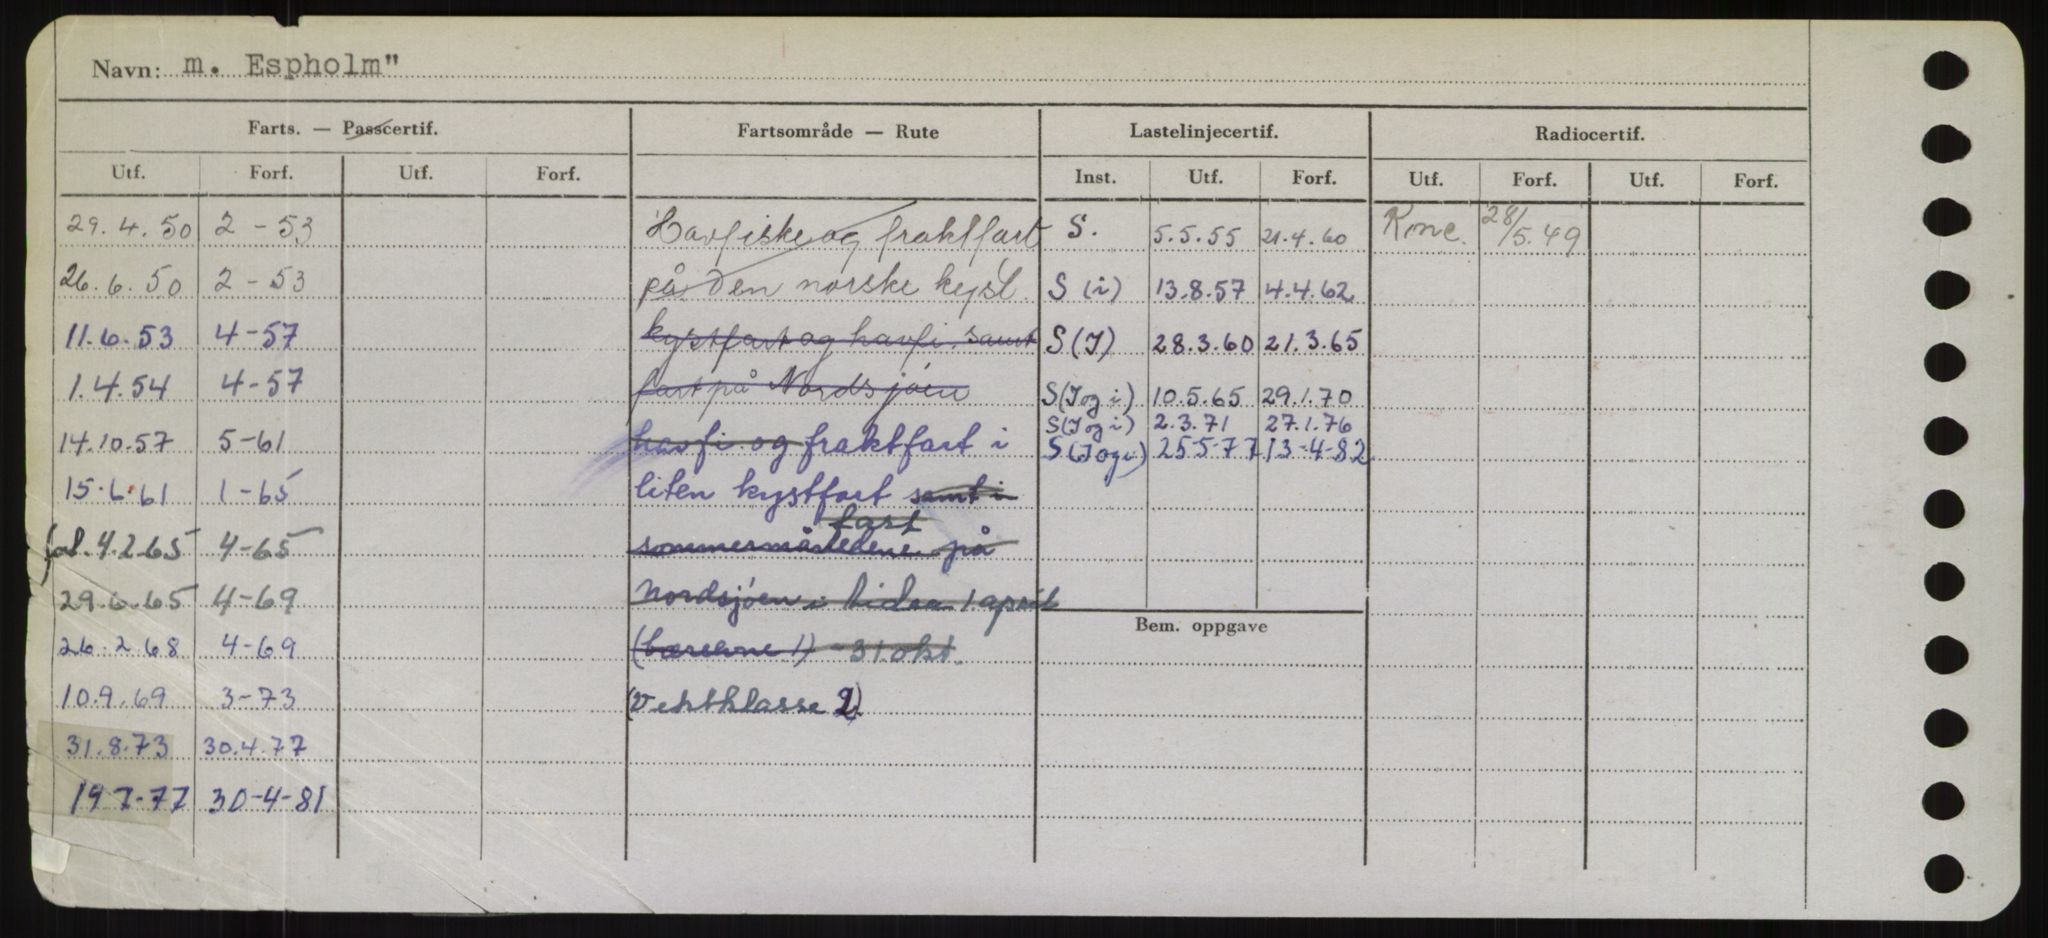 Navn: m. Espholm"
Farts. — Passcertif. Fartsområde — Rute Lastelinjecertif. Radiocertif.
Utf. Forf. Utf. Forf. Inst. Utf. Forf. Utf. Forf. Utf. Forf.
29.4.50 2-53 Havfiske og fraktfart S. 5.5.55 21.4.60 Konc. 28/5.49
26.6.50 2-53 på den norske kyst S (i) 13.8.57 4.4.62
11.6.53 4-57 kystfart og havfi. samt S(I) 28.3.60 21.3.65
1.4.54 4-57 fart på Nordsjøen S(I og i) 10.5.65 29.1.70
S(I og i) 2.3.71 27.1.76
14.10.57 5-61 havfi og fraktfart i S(I og i) 25-5-77 13-4-82
15.6.61 1-65 liten kystfart samt i
fart
4.2.65 4-65 sommermånedene på
29.6.65 4-69 Nordsjøen i tiden 1 april
Bem. oppgave
26.2.68 4-69 (bæreevne 1) - 31 okt.
10.9.69 3-73 (Vektklasse 2)
31.8.73 30.4.77
19 7-77 30-4-81